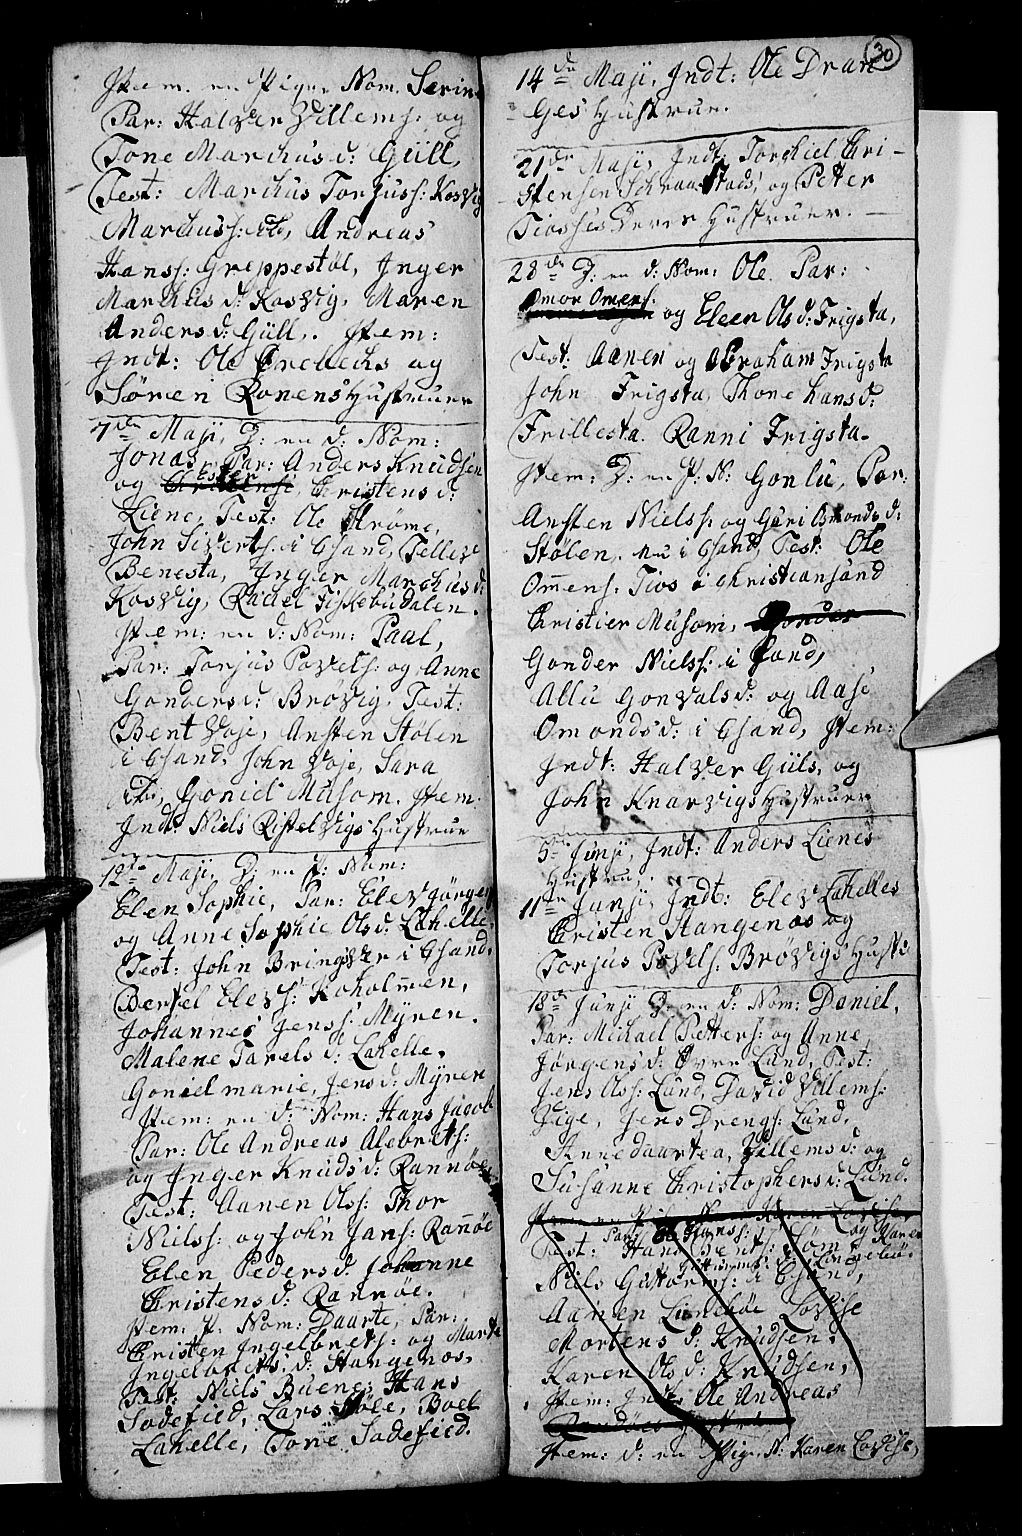 Item. en Pige, Nom. Serine
Par: Halver Villems: og
Tone Marchus d: Güll,
Test: Marchus Torjuss: Kosvig
Marchuss: ibid, Andreas
Hanss: Greppestøl, Inger
Marchus d: Kosvig, Maren
Anders d: Güll,. Item:
Indt: Ole Brebechs og
Søren Ronens Hustruer
7de Maji, D: en d: Nom:
Jonas, Par: Anders Knudsen
Ester
og Christens d:
Liene, Test: Ole Strøme,
John Siverts. i Chsand, Tellev
Benesta, Inger Marchus d:
Kosvig, Rachel Fiskebudalen.
Item: en d: Nom: Paal,
Par: Torjus Povels: og Anne
Gonders d: Brovig, Test:
Bent Voje, Ansten Stølen
i Chsand, John Voje, Sara
ibid, Goniel Musom. Item.
Ind: Niels Ristelvigs Hustrue
12te Maji, D: en P: Nom:
Elen Sophie, Par: Elev Jörgens
og Anne Sophie Ols d: Lahelle,
Test: John Bringsver i Chsand,
Bertel Elevs: Koholmen,
Johannes Jenss: Myren.
Malene Tarels d: Lahelle,
Goniel marie, Jens d: Myren
Item: en d: Nom: Hans Jacob
Par: Ole Andreas Alebrets:
og Inger Knuds d: Rannöe
Test: Aanen Olss: Thor
Nilss: og John Jans: Rannöe
Elen Peders d: Johanne
Christens d: Rannöe.
Item: P: Nom: Daarte, Par:
Christen Ingelbrets: og Marte
Ingelbrets: d: Stangenos,
Test: Niels Buene, Hans
Sodefied, Lars Støle, Boel
Lahelle, Tone Sodefied.
30
14de Maji, Indt: Ole Dran
Ges Hustrue.
21de Maji, Indt Torchiel Chri-
stensen Schraastads, og Petter
Tiosses Dere Hustruer.
28de D: en d: Nom: Ole. Par:
Omor Omens:
og Eleen Ols d: Frigsta,
Test: Aanen og Abraham Frigsta
John Frigsta, Thone Hans d:
Frillesta. Ranni Frigsta.
Item: D: en P: N: Gonlü, Par:
Ansten Niels: og Güri Osmonds d:
Stølen, nu i Chsand, Test: Ole
Omens, Tios i Christiansand
Christier Musom, Gonder
Gonder Nielss: i Chsand,
Allu Gonvals d: og Aase
Omonds d: i Chsand, Item:
Indt: Halver Güls, og
John Knarvigs Hustruer
5te Junji, Indt: Anders Lienes
Hustrue.
11te Junji, Indt: Elev Lahelles
Christen Stangenos og
Torjus Povels. Brövigs Hust:
18de Junji D: en d: Nom: Daniel,
Par: Michael Petters: og Anne
Jörgens d: Övre Lund, Test:
Jens Olss: Lund, David Villems:
Vige, Jens Drengs: Lund,
Anne daartea, Villems d: og
Susanne Christophers d: Lund.
Item en Pige Nom: Karen Lovise
Par: Hanss: og Karen
Test: Hans Bents: Som
Guttorms: d:
Niels Guttorms: i Chsand,
Aanen Lunehöe Lovise
Mortens d: Knudsen,
Karen Ols d: Knudsen,
Item: Indt: Ole Andreas
Item: d: en Pige, N: Karen Lovise,